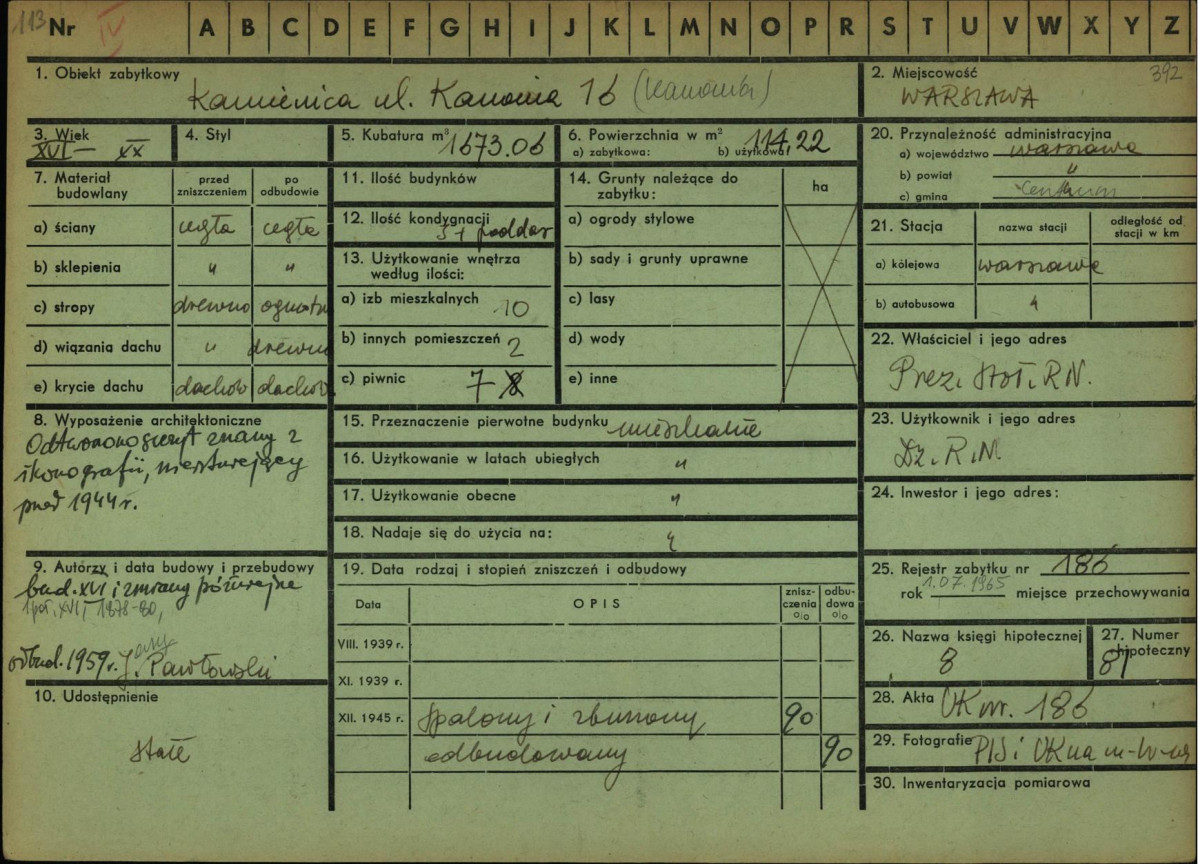 113 Nr IV A B C D E F G H I J K L M N O P R S T U V W X Y Z
1. Obiekt zabytkowy
Kamienica ul. Kanonia 16 (Kanonia)
2. Miejscowość 392
WARSZAWA
3. Wiek
XVI — XX
4. Styl
5. Kubatura m³ 1673.06
6. Powierzchnia w m²
a) zabytkowa: b) użytkowa: 114.22
7. Materiał budowlany
przed zniszczeniem
po odbudowie
a) ściany cegła cegła
b) sklepienia " "
c) stropy drewno ogniotrw
d) wiązania dachu " drewno
e) krycie dachu dachów dachów
8. Wyposażenie architektoniczne
Odtworzono szczyt znany z
ikonografii, nieistniejący
przed 1944 r.
9. Autorzy i data budowy i przebudowy
bud. XVI i zmiany późniejsze
1 poł. XVI, 1878-80,
odbud. 1959 r. Jerzy Pawłowski
10. Udostępnienie
stałe
11. Ilość budynków
12. Ilość kondygnacji
3 + poddasz
13. Użytkowanie wnętrza
według ilości:
a) izb mieszkalnych 10
b) innych pomieszczeń 2
c) piwnic 7
14. Grunty należące do
zabytku:
ha
a) ogrody stylowe
b) sady i grunty uprawne
c) lasy
d) wody
e) inne
15. Przeznaczenie pierwotne budynku mieszkalne
16. Użytkowanie w latach ubiegłych "
17. Użytkowanie obecne "
18. Nadaje się do użycia na: "
19. Data rodzaj i stopień zniszczeń i odbudowy
Data OPIS
znisz-
czenia
%
odbu-
dowa
%
VIII. 1939 r.
XI. 1939 r.
XII. 1945 r. spalony i zburzony 90
odbudowany 90
20. Przynależność administracyjna
a) województwo warszawa
b) powiat "
c) gmina Centrum
21. Stacja
nazwa stacji
odległość od
stacji w km
a) kolejowa warszawa
b) autobusowa "
22. Właściciel i jego adres
Prez. Stoł. R.N.
23. Użytkownik i jego adres
Dz. R. N.
24. Inwestor i jego adres:
25. Rejestr zabytku nr 186
rok 1.07.1965 miejsce przechowywania
26. Nazwa księgi hipotecznej
8
27. Numer
hipoteczny
81
28. Akta UK nr. 186
29. Fotografie PIS i UK na m-W-wę
30. Inwentaryzacja pomiarowa